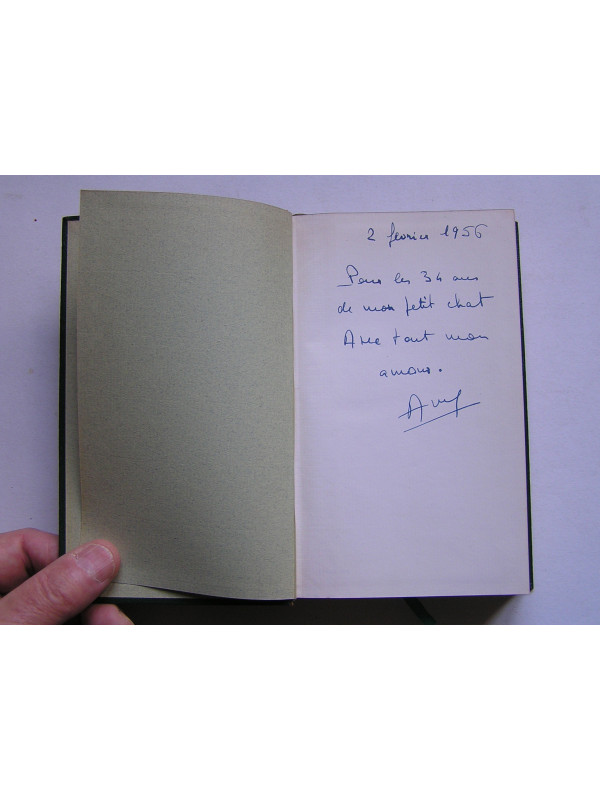 2 février 1956
Pour les 34 ans
de mon petit chat
Avec tout mon
amour.